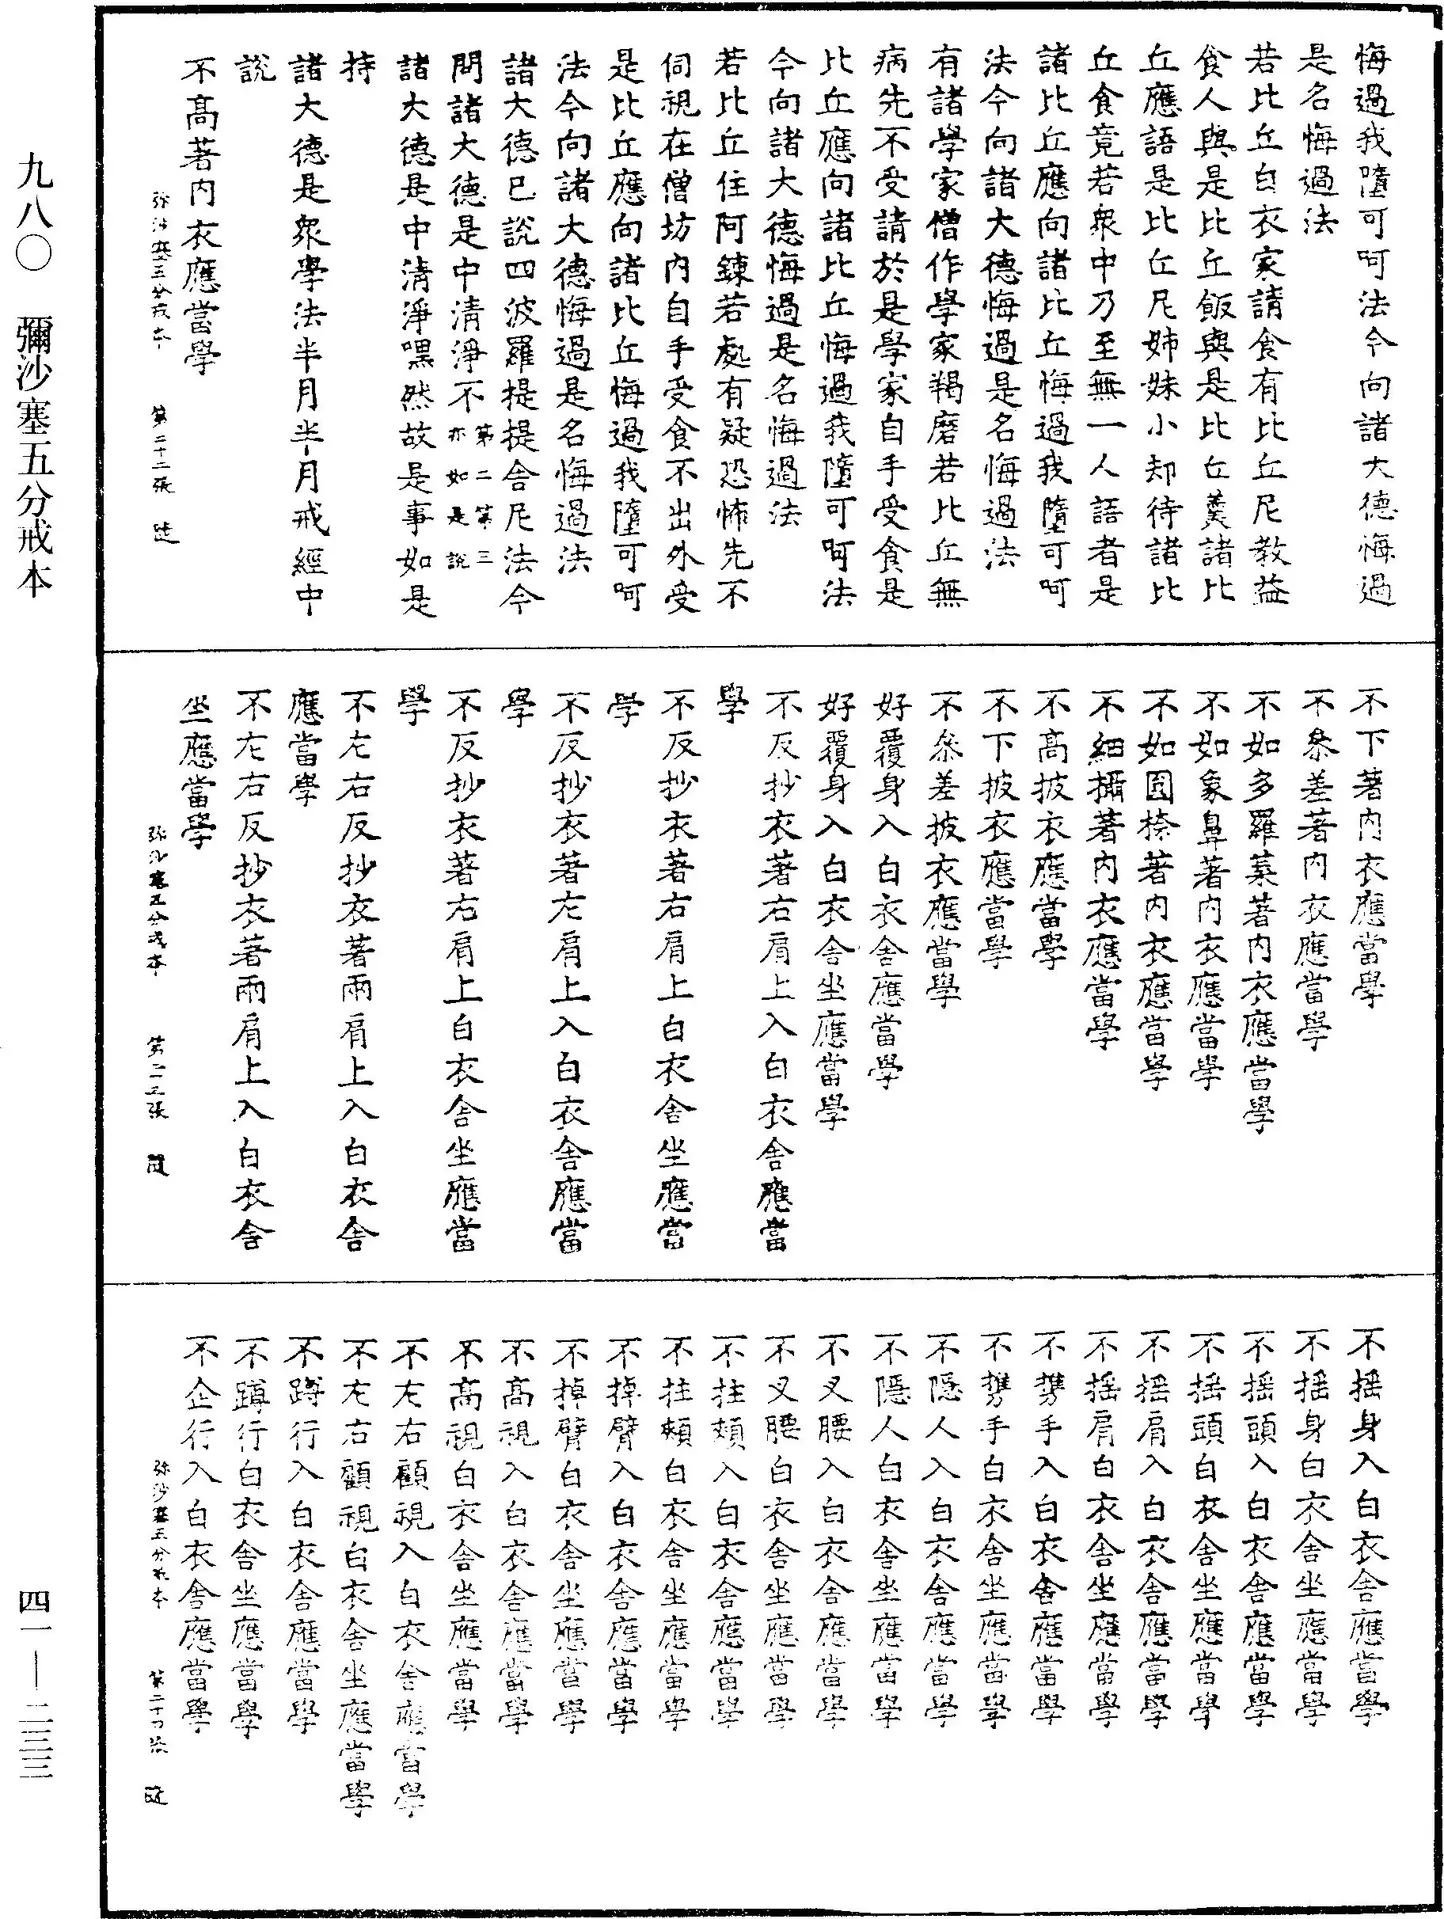 悔過我墮可呵法今向諸大德悔過
是名悔過法
若比丘白衣家請食有比丘尼教益
食人與是比丘飯與是比丘羹諸比
丘應語是比丘尼姊妹小却待諸比
丘食竟若衆中乃至無一人語者是
諸比丘應向諸比丘悔過我墮可呵
法今向諸大德悔過是名悔過法
有諸學家僧作學家羯磨若比丘無
病先不受請於是學家自手受食是
比丘應向諸比丘悔過我墮可呵法
今向諸大德悔過是名悔過法
若比丘住阿鍊若處有疑恐怖先不
伺視在僧坊內自手受食不出外受
是比丘應向諸比丘悔過我墮可呵
法今向諸大德悔過是名悔過法
諸大德已說四波羅提提舍尼法今
問諸大德是中清淨不第二第三亦如是說
諸大德是中清淨嘿然故是事如是
持
諸大德是衆學法半月半月戒經中
說
不高著內衣應當學
弥沙塞五分戒本 第二十二張 隨
不下著內衣應當學
不參差著內衣應當學
不如多羅葉著內衣應當學
不如象鼻著內衣應當學
不如圓捺著內衣應當學
不細攝著內衣應當學
不高披衣應當學
不下披衣應當學
不參差披衣應當學
好覆身入白衣舍應當學
好覆身入白衣舍坐應當學
不反抄衣著右肩上入白衣舍應當
學
不反抄衣著右肩上白衣舍坐應當
學
不反抄衣著左肩上入白衣舍應當
學
不反抄衣著右肩上白衣舍坐應當
學
不左右反抄衣著兩肩上入白衣舍
應當學
不左右反抄衣著兩肩上入白衣舍
坐應當學
弥沙塞五分戒本 第二十三張 隨
不摇身入白衣舍應當學
不摇身白衣舍坐應當學
不摇頭入白衣舍應當學
不摇頭白衣舍坐應當學
不摇肩入白衣舍應當學
不摇肩白衣舍坐應當學
不携手入白衣舍應當學
不携手白衣舍坐應當學
不隱人入白衣舍應當學
不隱人白衣舍坐應當學
不叉腰入白衣舍應當學
不叉腰白衣舍坐應當學
不拄頰入白衣舍應當學
不拄頰白衣舍坐應當學
不掉臂入白衣舍應當學
不掉臂白衣舍坐應當學
不高視入白衣舍應當學
不高視白衣舍坐應當學
不左右顧視入白衣舍應當學
不左右顧視白衣舍坐應當學
不蹲行入白衣舍應當學
不蹲行白衣舍坐應當學
不企行入白衣舍應當學
弥沙塞五分戒本 第二十四張 隨
九八〇 彌沙塞五分戒本
四一—二三三